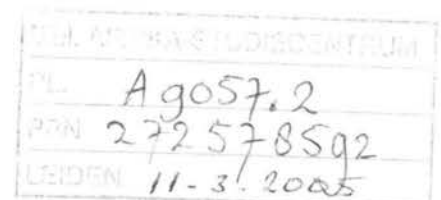 AFRIKA-STUDIECENTRUM
PL. A 9057.2
PPN 272578592
LEIDEN 11-3-2005